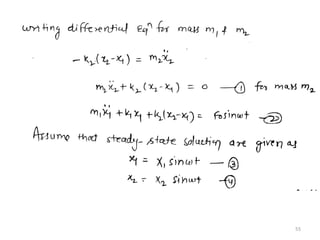 writing differential Eqⁿ for mass m₁ & m₂
- k₂(x₂-x₁) = m₂ẍ₂
m₂ẍ₂ + k₂(x₂-x₁) = 0 —① for mass m₂
m₁ẍ₁ + k₁x₁ + k₂(x₂-x₁) = F₀sinωt —②
Assume that steady-state solution are given as
x₁ = X₁ sinωt —③
x₂ = X₂ sinωt —④